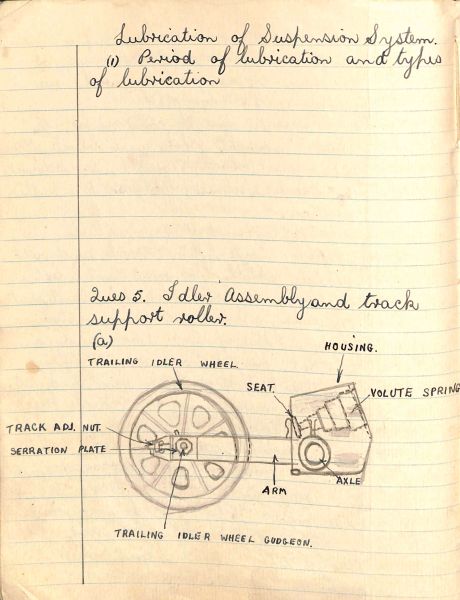 Lubrication of Suspension System.
(1) Period of lubrication and types
of lubrication
Ques 5. Idler Assembly and track
support roller.
(a)
HOUSING.
TRAILING IDLER WHEEL.
SEAT.
VOLUTE SPRING
TRACK ADJ. NUT.
SERRATION PLATE
AXLE
ARM
TRAILING IDLER WHEEL GUDGEON.